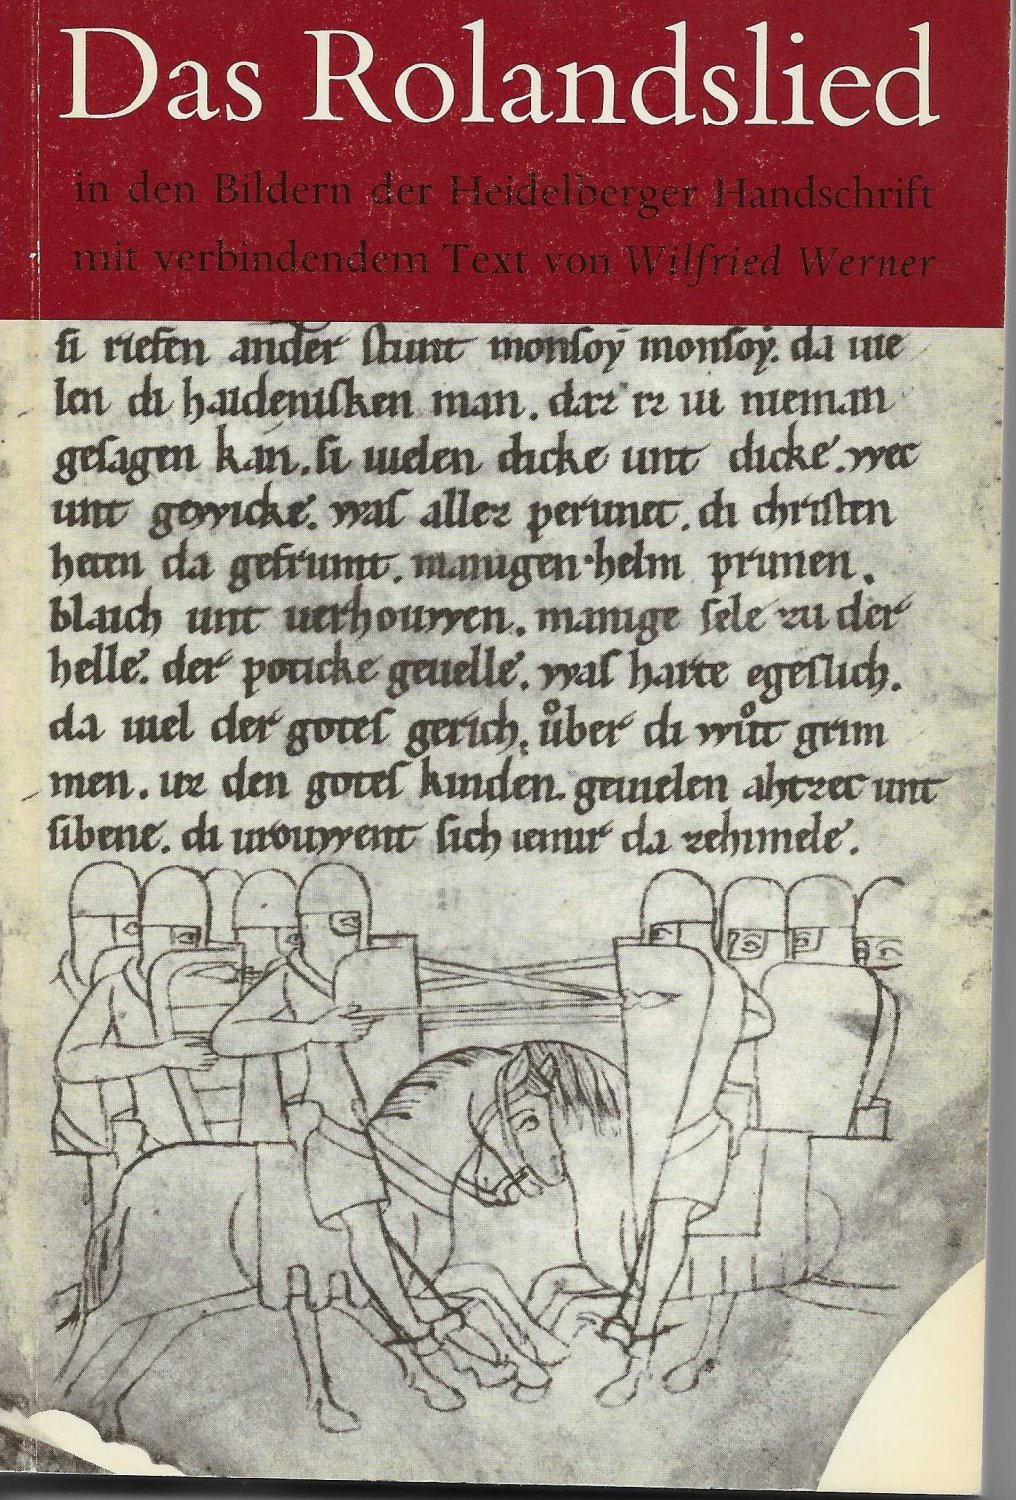 Das Rolandslied
in den Bildern der Heidelberger Handschrift
mit verbindendem Text von Wilfried Werner
ſi riefen ander ſtunt monſoy monſoy. da uie
len di haideniſken man. daz iz ıu nieman
geſagen kan. ſi uielen dicke unt dicke. wec
unt gewicke. was allez perunet. di chriſten
heten da gefrumt. manigen helm prunen.
blaich unt uerhouwen. manige ſele zu der
helle. der poticke geuelle. was harte egeſlich.
da uiel der gotes gerich, uͦber di wuͦt grim
men. uz den gotes kinden. geuielen ahtzec unt
ſibene. di urouwent ſich iemir da zehimele.